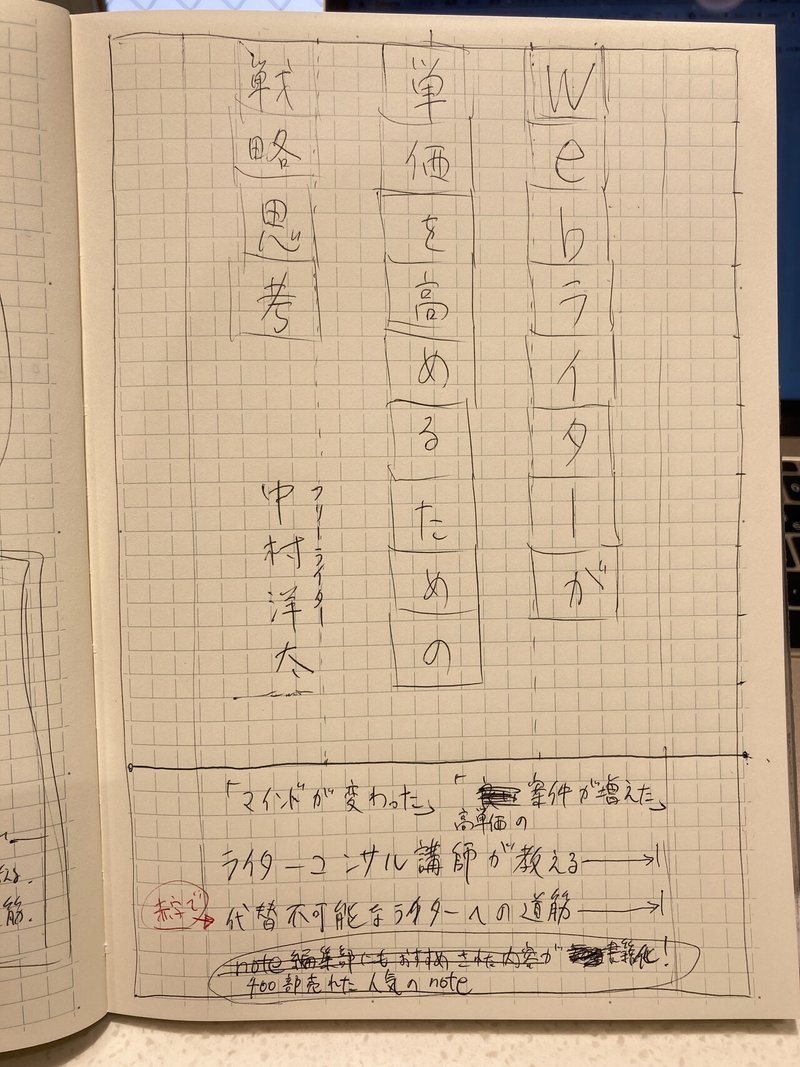 Webライターが
単価を高めるための
戦略思考
フリーライター
中村洋太
「マインドが変わった」「高単価の案件が増えた」
ライターコンサル講師が教える
赤字で
代替不可能なライターへの道筋
note編集部にもおすすめされた内容が書籍化!
400部売れた人気のnote
える.
筋.